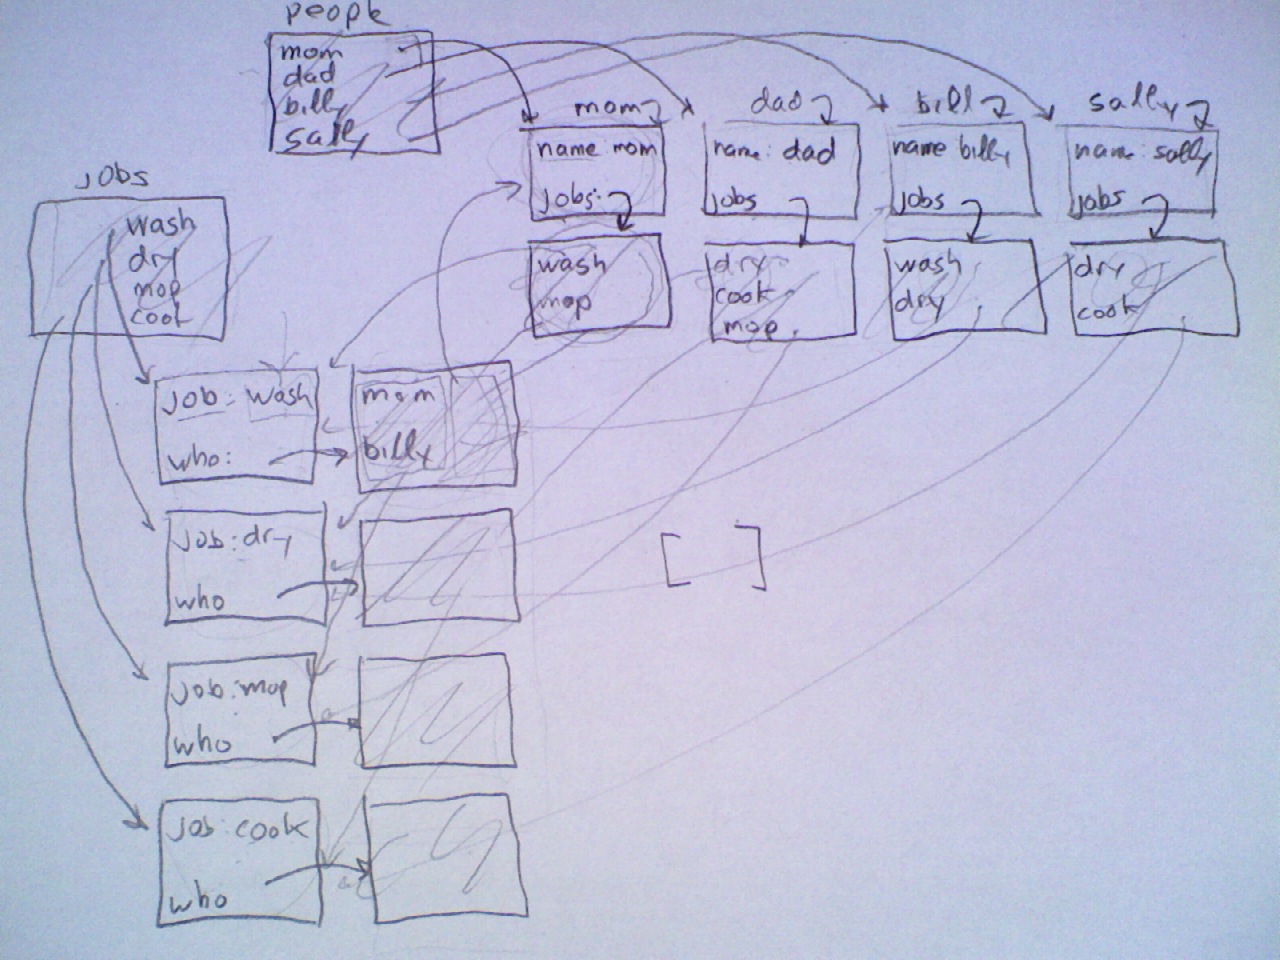 people
mom
dad
billy
sally
mom
name: mom
jobs:
wash
mop
dad
name: dad
jobs
dry
cook
mop
bill
name billy
jobs
wash
dry
sally
name: sally
jobs
dry
cook
jobs
wash
dry
mop
cook
job: wash
who:
mom
billy
job: dry
who
[ ]
job: mop
who
job: cook
who